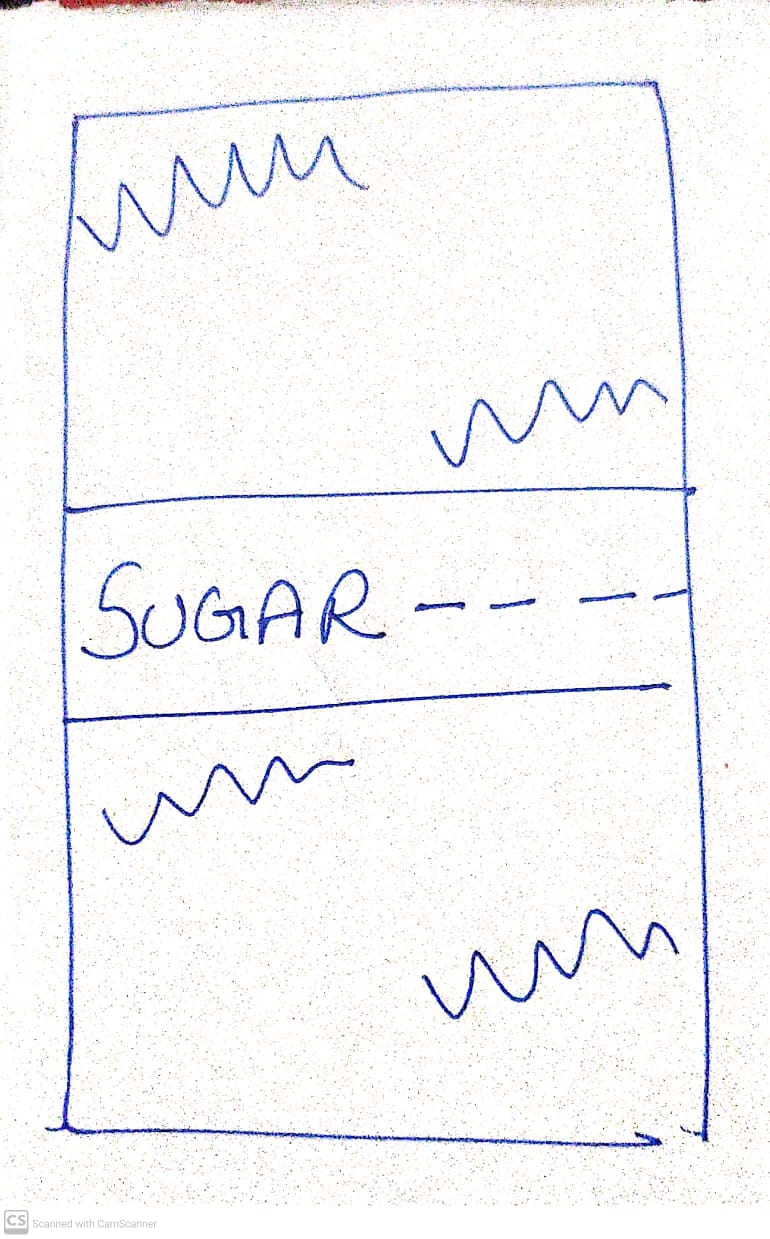 SUGAR - - - -
CS Scanned with CamScanner